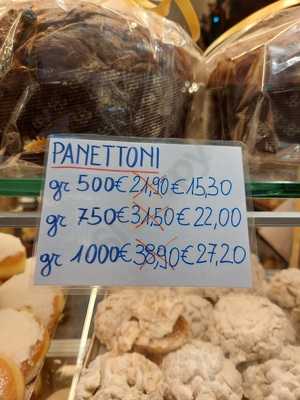 PANETTONI
gr 500 € 21,90 € 15,30
gr 750 € 31,50 € 22,00
gr 1000 € 38,90 € 27,20